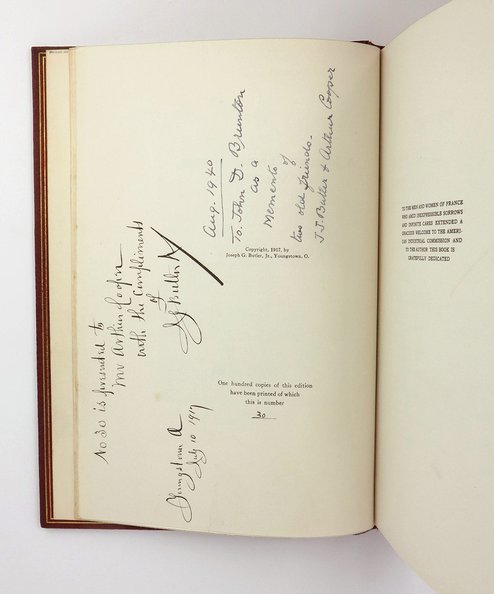 No 30 is presented to
Mr Arthur Cooper
with the Compliments
of
J G Butler Jr
Youngstown O
July 10 1917
Aug. 1940
To John D. Brunton
as a
Memento
of
two old friends-
J.G. Butler & Arthur Cooper
Copyright, 1917, by
Joseph G. Butler, Jr., Youngstown, O.
One hundred copies of this edition
have been printed of which
this is number
30
TO THE MEN AND WOMEN OF FRANCE
WHO AMID INEXPRESSIBLE SORROWS
AND INFINITE CARES EXTENDED A
GRACIOUS WELCOME TO THE AMERI-
CAN INDUSTRIAL COMMISSION AND
TO THE AUTHOR THIS BOOK IS
GRATEFULLY DEDICATED